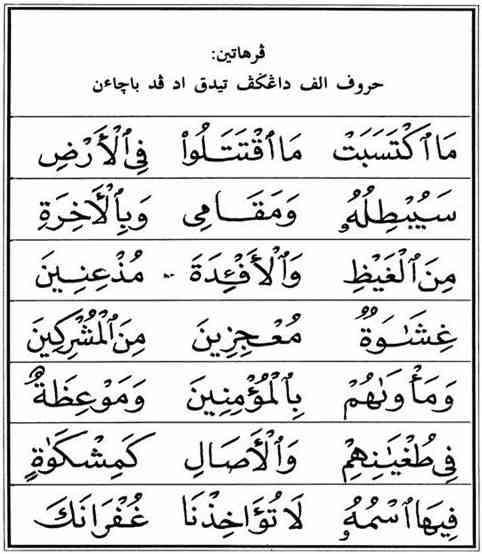 ڤرهاتين:
حروف الف داڠݢڤ تيدق اد ڤد باچاءن
مَا ٱكْتَسَبَتْ مَا ٱقْتَتَلُوا۟ فِى ٱلْأَرْضِ
سَيُبْطِلُهُۥ وَمَقَامِى وَبِٱلْأَخِرَةِ
مِنَ ٱلْغَيْظِ وَٱلْأَفْـِٔدَةَ مُذْعِنِينَ
غِشَـٰوَةٌ مُعَـٰجِزِينَ مِنَ ٱلْمُشْرِكِينَ
وَمَأْوَىٰهُمْ بِٱلْمُؤْمِنِينَ وَمَوْعِظَةٌ
فِى طُغْيَـٰنِهِمْ وَٱلْأَصَالِ كَمِشْكَوٰةٍ
فِيهَا ٱسْمُهُۥ لَا تُؤَاخِذْنَا غُفْرَانَكَ